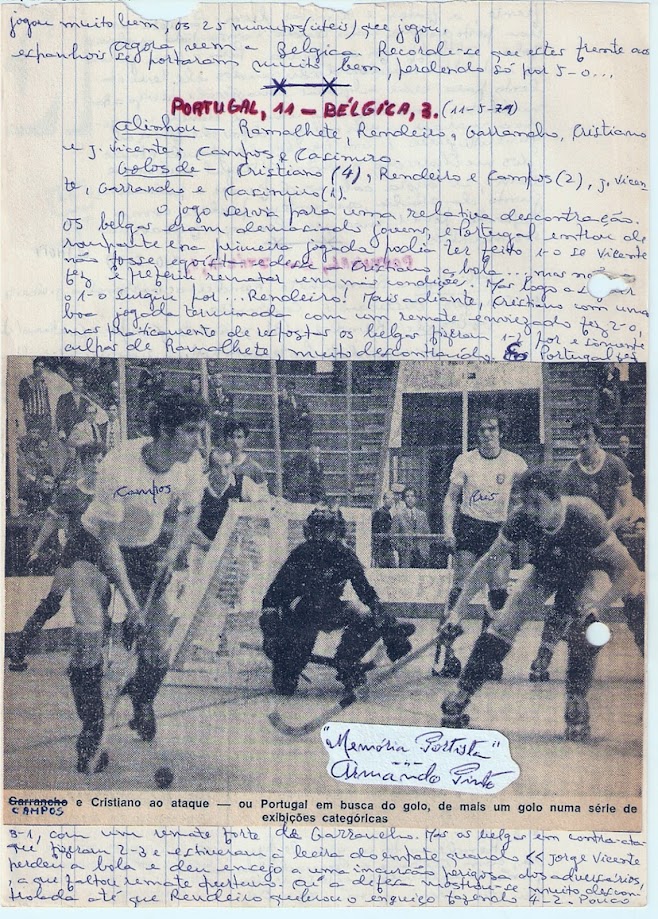 jogou muito bem, os 25 minutos (úteis) que jogou.
Agora vem a Bélgica. Recorde-se que estes frente aos
espanhois se portaram muito bem, perdendo só por 5-0...
PORTUGAL, 11 - BÉLGICA, 3. (11-5-74)
Alinhou - Ramalhete, Rendeiro, Garrancho, Cristiano
e J. Vicente; Campos e Casimiro.
Golos de - Cristiano (4), Rendeiro e Campos (2), J. Vicen-
te, Garrancho e Casimiro (1).
O jogo servia para uma relativa descontração.
Os belgas eram demasiado jovens, e Portugal entrou de
rompante e na primeira jogada podia ter feito 1-0 se Vicente
não fosse egoista e desse a Cristiano a bola... mas não o
fez e preferiu rematar em más condições. Mas logo a seguir
o 1-0 surgiu por... Rendeiro! Mais adiante, Cristiano com uma
boa jogada terminada com um remate enviezado fez 2-0,
mas praticamente de resposta os belgas fizeram 1-2 por e somente
culpas de Ramalhete, muito descontraído. Portugal fez
Campos
Cris
"Memória Portista"
Armando Pinto
Garrancho e Cristiano ao ataque — ou Portugal em busca do golo, de mais um golo numa série de
CAMPOS
exibições categóricas
3-1, com um remate forte de Garrancho. Mas os belgas em contra-ata-
que fizeram 2-3 e estiveram à beira do empate quando << Jorge Vicente
perdeu a bola e deu ensejo a uma incursão perigosa dos adversários,
a que faltou remate oportuno. Aí a defesa mostrou-se muito descon-
trolada até que Rendeiro quebrou o enguiço fazendo 4-2. Pouco